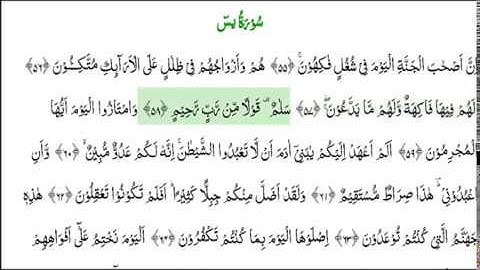 سُوْرَةُ يٰسٓ
اِنَّ اَصْحٰبَ الْجَنَّةِ الْيَوْمَ فِيْ شُغُلٍ فٰكِهُوْنَ ۚ﴿۵۵﴾ هُمْ وَاَزْوَاجُهُمْ فِيْ ظِلٰلٍ عَلَى الْاَرَآئِكِ مُتَّكِـُٔوْنَ ﴿۵۶﴾
لَهُمْ فِيْهَا فَاكِهَةٌ وَّلَهُمْ مَّا يَدَّعُوْنَ ۚۖ﴿۵۷﴾ سَلٰمٌ ۟ قَوْلًا مِّنْ رَّبٍّ رَّحِيْمٍ ﴿۵۸﴾ وَامْتَازُوا الْيَوْمَ اَيُّهَا
الْمُجْرِمُوْنَ ﴿۵۹﴾ اَلَمْ اَعْهَدْ اِلَيْكُمْ يٰبَنِيْٓ اٰدَمَ اَنْ لَّا تَعْبُدُوا الشَّيْطٰنَ ۚ اِنَّهٗ لَكُمْ عَدُوٌّ مُّبِيْنٌ ۙ﴿۶۰﴾ وَّاَنِ
اعْبُدُوْنِيْ ؕ هٰذَا صِرَاطٌ مُّسْتَقِيْمٌ ﴿۶۱﴾ وَلَقَدْ اَضَلَّ مِنْكُمْ جِبِلًّا كَثِيْرًا ؕ اَفَلَمْ تَكُوْنُوْا تَعْقِلُوْنَ ﴿۶۲﴾ هٰذِهٖ
جَهَنَّمُ الَّتِيْ كُنْتُمْ تُوْعَدُوْنَ ﴿۶۳﴾ اِصْلَوْهَا الْيَوْمَ بِمَا كُنْتُمْ تَكْفُرُوْنَ ﴿۶۴﴾ اَلْيَوْمَ نَخْتِمُ عَلٰٓى اَفْوَاهِهِمْ